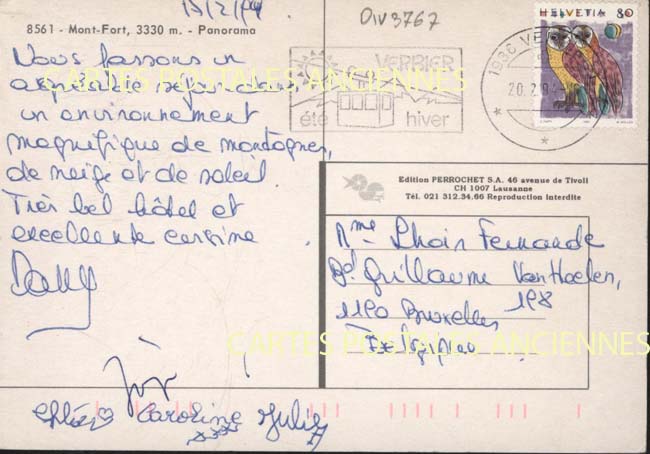 DIV3767
8561 - Mont-Fort, 3330 m. - Panorama
HELVETIA 80
VERBIER
été hiver
1936 VERBIER
20.2.9
CARTES POSTALES ANCIENNES
Nous passons un
agréable séjour dans
un environnement
magnifique de montagnes,
de neige et de soleil.
Très bel hôtel et
excellente cuisine.
Dany
Chloé Caroline Julie
Edition PERROCHET S.A. 46 avenue de Tivoli
CH 1007 Lausanne
Tél. 021 312.34.66 Reproduction interdite
Mme Fernande
Bd Guillaume Van Haelen,
198
1190 Bruxelles
Belgique
CARTES POSTALES ANCIENNES